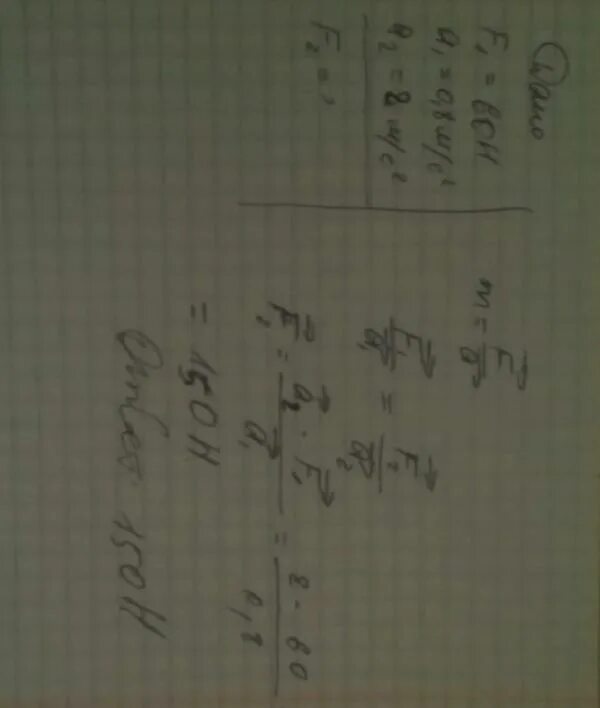 Дано
F₁ = 60H
a₁ = 0,8 м/с²
a₂ = 2 м/с²
F₂ = ?
m = F/a
F₁/a₁ = F₂/a₂
F₂ = a₂ · F₁ / a₁ = 2 · 60 / 0,8
= 150H
Ответ 150H